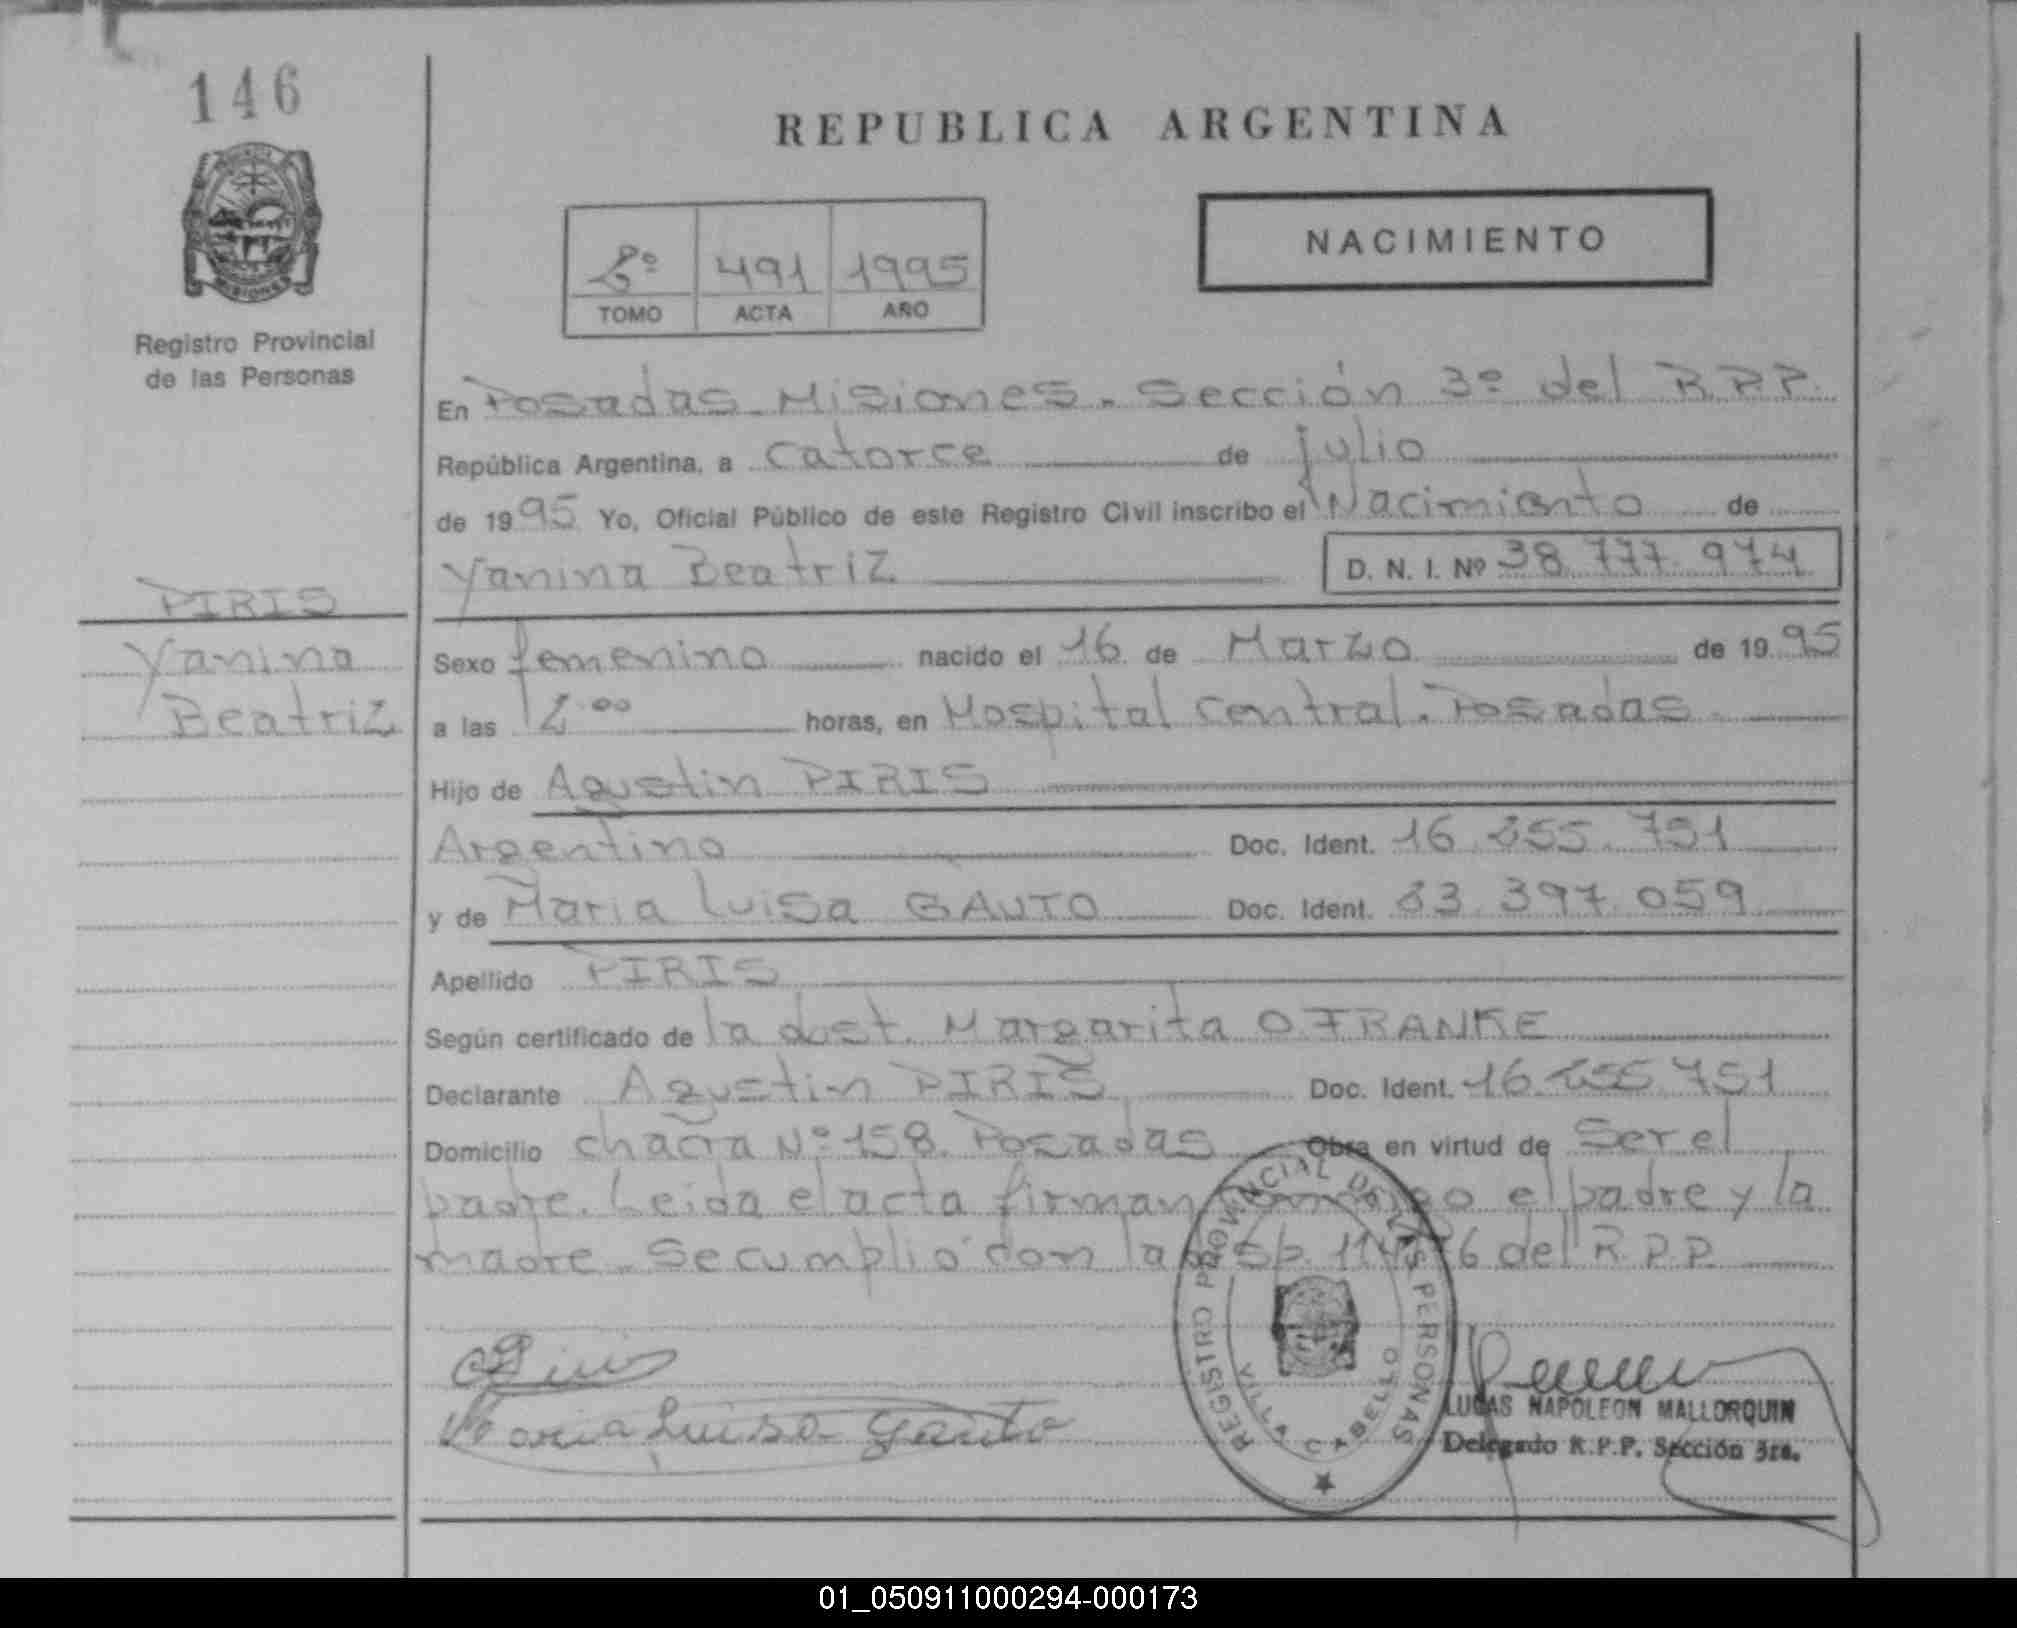 146
REPUBLICA ARGENTINA
NACIMIENTO
2º 491 1995
TOMO ACTA AÑO
MISIONES
Registro Provincial
de las Personas
En Posadas Misiones. Sección 3º del R.P.P.
República Argentina, a catorce de julio
de 1995 Yo, Oficial Público de este Registro Civil inscribo el Nacimiento de
Yanina Beatriz D. N. I. Nº 38.777.974
PIRIS
Yanina
Beatriz
Sexo femenino nacido el 16 de Marzo de 1995
a las 12.00 horas, en Hospital Central. Posadas
Hijo de Agustin PIRIS
Argentino Doc. Ident. 16.255.751
y de Maria Luisa GAUTO Doc. Ident. 23.397.059
Apellido PIRIS
Según certificado de la obst. Margarita O FRANKE
Declarante Agustin PIRIS Doc. Ident. 16.255.751
Domicilio chacra Nº 158. Posadas Obra en virtud de Ser el
padre. Leida el acta firman conmigo el padre y la
madre. Se cumplio con la 114/76 del R.P.P.
Piris
Maria Luisa Gauto
REGISTRO PROVINCIAL DE LAS PERSONAS
VILLA CABELLO
LUCAS NAPOLEON MALLORQUIN
Delegado R.P.P. Sección 3ra.
01_050911000294-000173